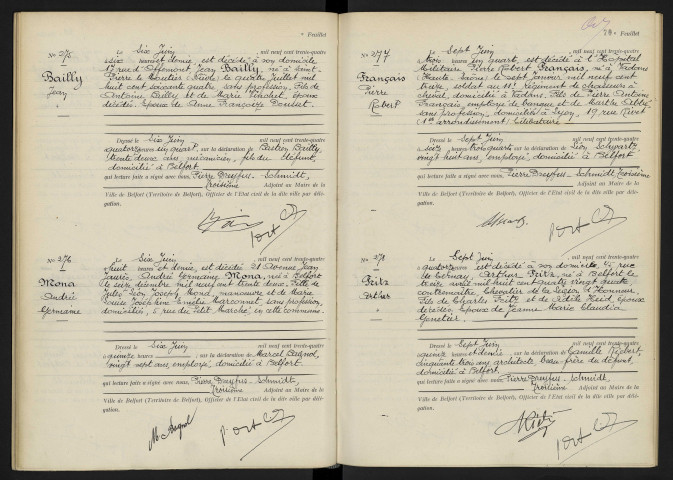 Nº 275
Bailly
Jean
Le Six Juin, mil neuf cent trente-quatre
six heures et demie, est décédé à son domicile
17 rue d'Offemont Jean Bailly, né à Saint-
Pierre le Moutier Nièvre le quatre Juillet mil
huit cent soixante quatre sans profession, Fils de
Antoine Bailly et de Marie, époux
décédés. Epoux de Anne Françoise Dousset.
Dressé le Six Juin, mil neuf cent trente-quatre
quatorze heures un quart, sur la déclaration de Bailly,
trente deux ans, mécanicien, fils du défunt,
domicilié à Belfort
qui lecture faite a signé avec nous, Pierre Dreyfus-Schmidt,
Troisième Adjoint au Maire de la
Ville de Belfort (Territoire de Belfort), Officier de l'Etat civil de la dite ville par délé-
gation.
Nº 276
Mona
Andrée
Germaine
Le Six Juin, mil neuf cent trente-quatre
huit heures et demie, est décédée 21 Avenue Jean
Jaurès, Andrée Germaine Mona, née à Belfort
le onze décembre mil neuf cent trente deux. Fille de
Jules Léon Joseph Mona, manœuvre et de Marie
Louise Joséphine Emélie Marconnet, sans profession,
domiciliés, 5 rue du Petit Marché, en cette commune.
Dressé le Six Juin, mil neuf cent trente-quatre
quinze heures, sur la déclaration de Marcel Cagnol,
vingt sept ans, employé, domicilié à Belfort.
qui lecture faite a signé avec nous, Pierre Dreyfus-Schmidt,
Troisième Adjoint au Maire de la
Ville de Belfort (Territoire de Belfort), Officier de l'Etat civil de la dite ville par délé-
gation.
79e Feuillet
Nº 277
Français
Pierre
Robert
Le Sept Juin, mil neuf cent trente-quatre
trois heures un quart, est décédé à l'Hôpital
Militaire Pierre Robert Français, né à Vadans
(Haute Saône) le sept Janvier mil neuf cent
treize, soldat au 11e Régiment de chasseurs à
cheval, domicilié à Vadans. Fils de Pierre Antoine
Français, employé de banque et de Marthe Abbé
sans profession, domiciliés à Lyon, 19 rue Rivet
(1er arrondissement) Célibataire.
Dressé le Sept Juin, mil neuf cent trente-quatre
heures trois quarts, sur la déclaration de Léon Schwartz
vingt huit ans, employé, domicilié à Belfort
qui lecture faite a signé avec nous, Pierre Dreyfus-Schmidt, Troisième
Adjoint au Maire de la
Ville de Belfort (Territoire de Belfort), Officier de l'Etat civil de la dite ville par délé-
gation.
Nº 278
Fritz
Arthur
Le Sept Juin, mil neuf cent trente-quatre
quatorze heures est décédé à son domicile, rue
de Cernay, Arthur Fritz, né à Belfort le
treize mil huit cent quatre vingt quatre,
contremaître, Chevalier de la Légion d'Honneur
Fils de Charles Fritz et de Adèle Heid, époux
décédés. Epoux de Jeanne Marie Claudia
Genetier.
Dressé le Sept Juin, mil neuf cent trente-quatre
quinze heures et demie, sur la déclaration de Camille
cinquante trois ans, architecte, beau frère du défunt,
domicilié à Belfort,
qui lecture faite a signé avec nous, Pierre Dreyfus-Schmidt,
Troisième Adjoint au Maire de la
Ville de Belfort (Territoire de Belfort), Officier de l'Etat civil de la dite ville par délé-
gation.